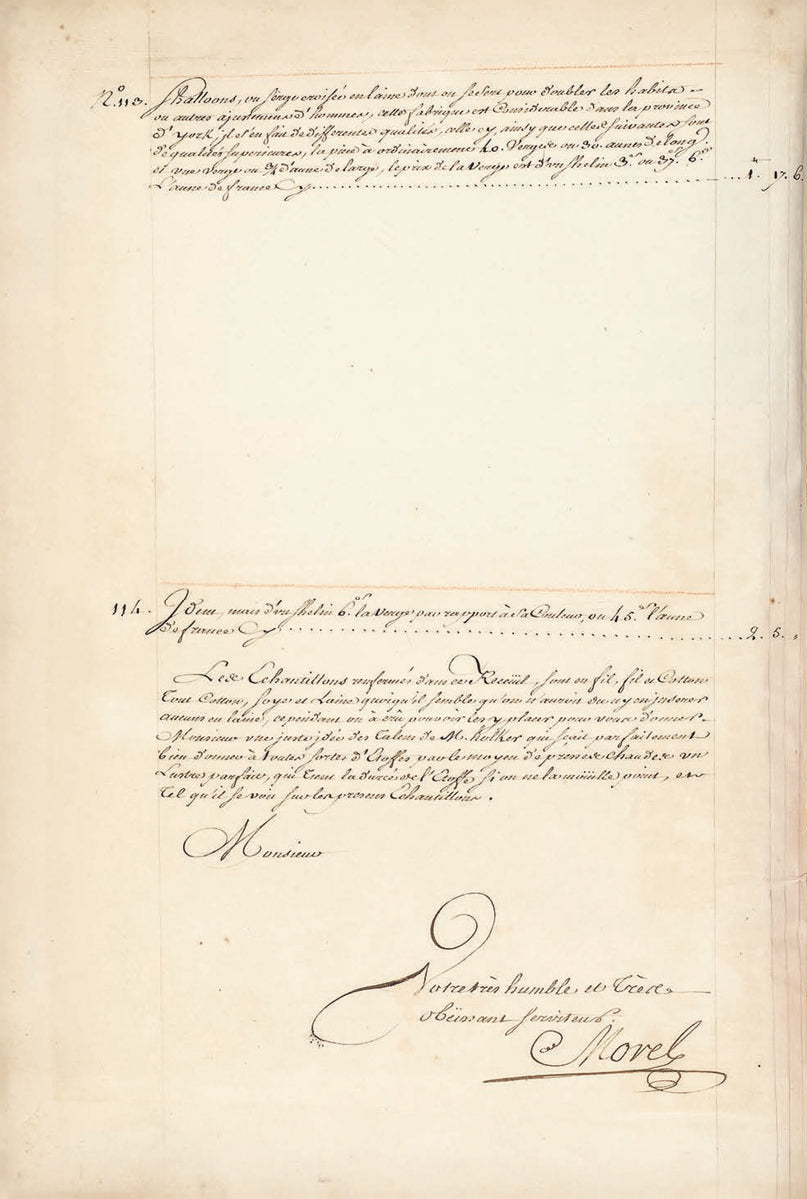 N.º 113. Shalloons, ou serge croisée en laine dont on se sert pour doubler les habits
ou autres ajustemens d'hommes, cette fabrique est Considerable dans la province
d'york, il s'en fait de differentes qualités, celle cy, ainsy que celles suivantes sont
de qualités superieures, la piece a ordinairement 40. Verges ou 30. aunes de long
et une verge ou ¾ d'aune de large, le prix de la Verge est d'un shelin 3. ou 37.s 6.d
L'aune de france Cy .......... 1. 17. 6
114. Idem, mais d'un shelin 6. la verge par rapport à Sa Couleur, ou 45.s l'aune
de france Cy .......... 2. 5. "
Les Echantillons renfermés dans ce Receüil, sont en fil, fil et Cotton
Tout Cotton, soye et Laine quoiqu'il semble qu'on n'auroit du y en inserer
aucuns en laine, cependant on a crû pouvoir les y placer pour vous donner
Monsieur une juste idée des Talens de M. hulker qui sçait parfaitement
bien donner à toutes sortes d'Etoffes par le moyen de presses chaudes un
Lustre parfait, qui tient la durée de l'Etoffe si on ne la moüille point, et
Tel qu'il se voit sur les presens Echantillons.
Monsieur
Votre très humble et Très
obëissant serviteur.
Morel